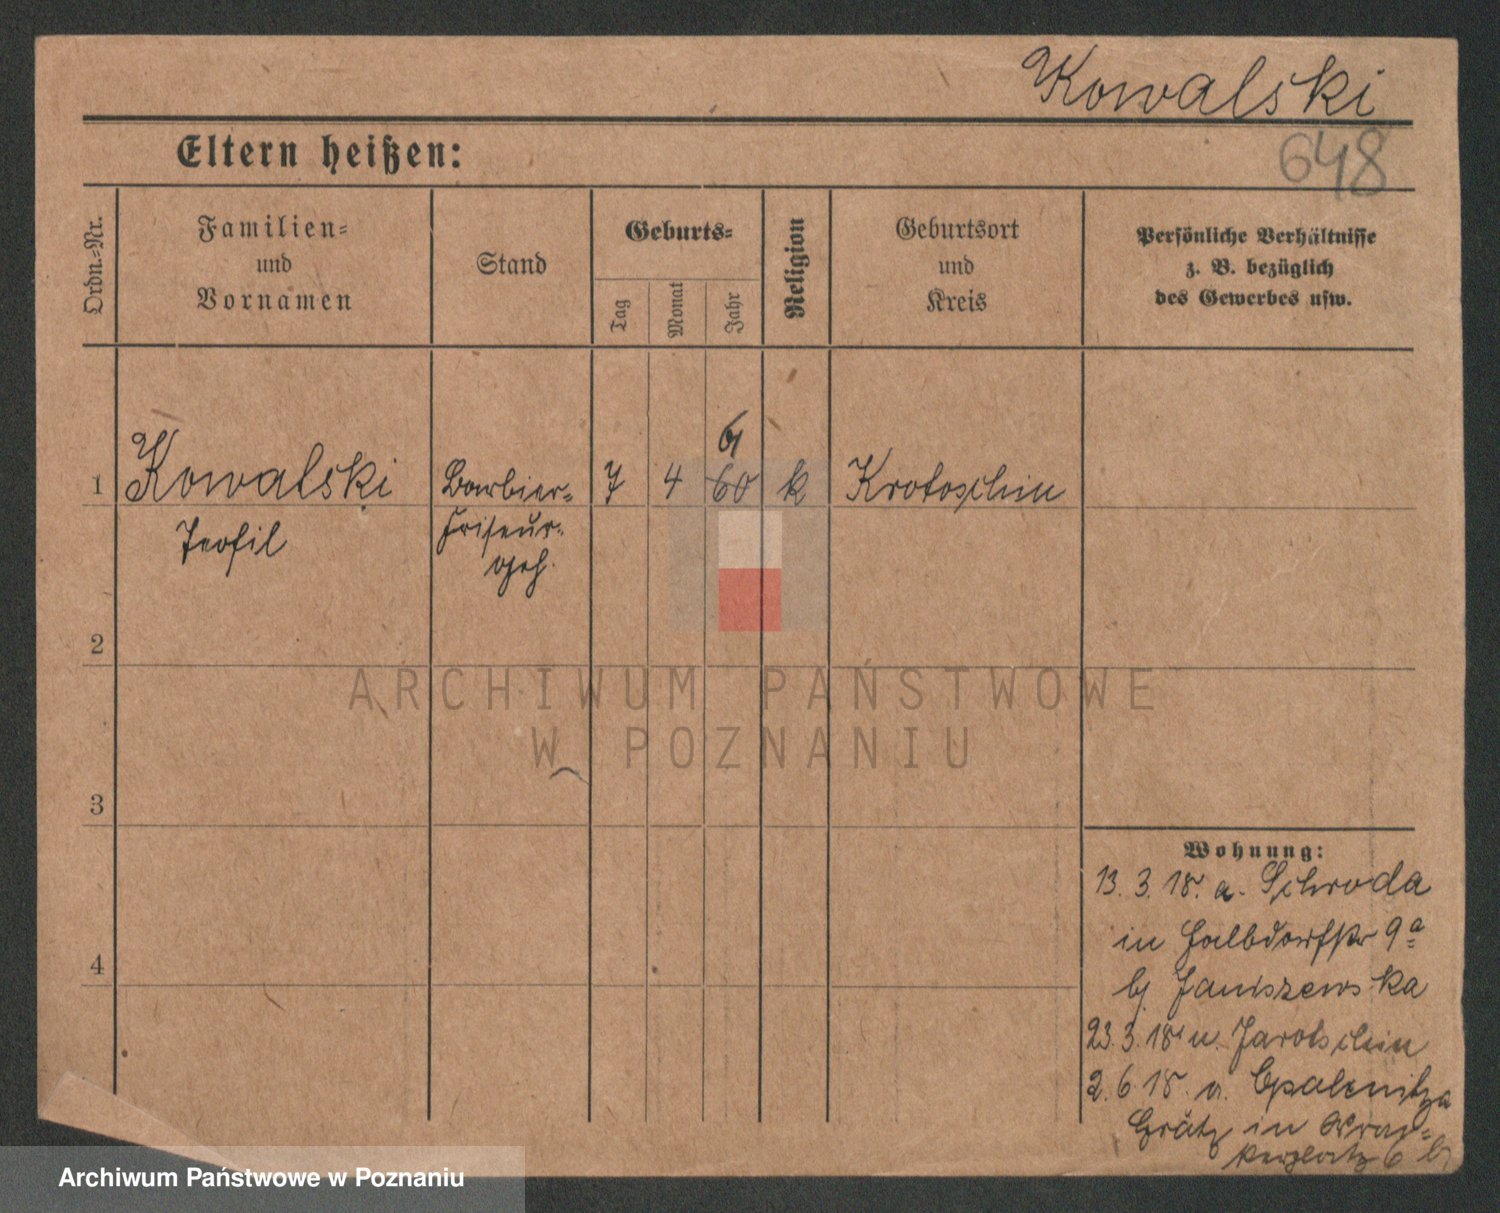 Kowalski
648
Eltern heißen:
Ordn.-Nr.
Familien-
und
Vornamen
Stand
Geburts-
Tag
Monat
Jahr
Religion
Geburtsort
und
Kreis
Persönliche Verhältnisse
z. B. bezüglich
des Gewerbes usw.
6
1 Kowalski Barbier- 7 4 60 k Krotoschin
Teofil Friseur-
geh.
2
3
4
ARCHIWUM PAŃSTWOWE
W POZNANIU
Wohnung:
13. 3. 18. a. Schroda
in Halbdorfstr 9a
b/ Janiszewska
23. 3. 18 n. Jarotschin
2. 6 18. a. Opalenitza
Grätz in
6 b/
Archiwum Państwowe w Poznaniu